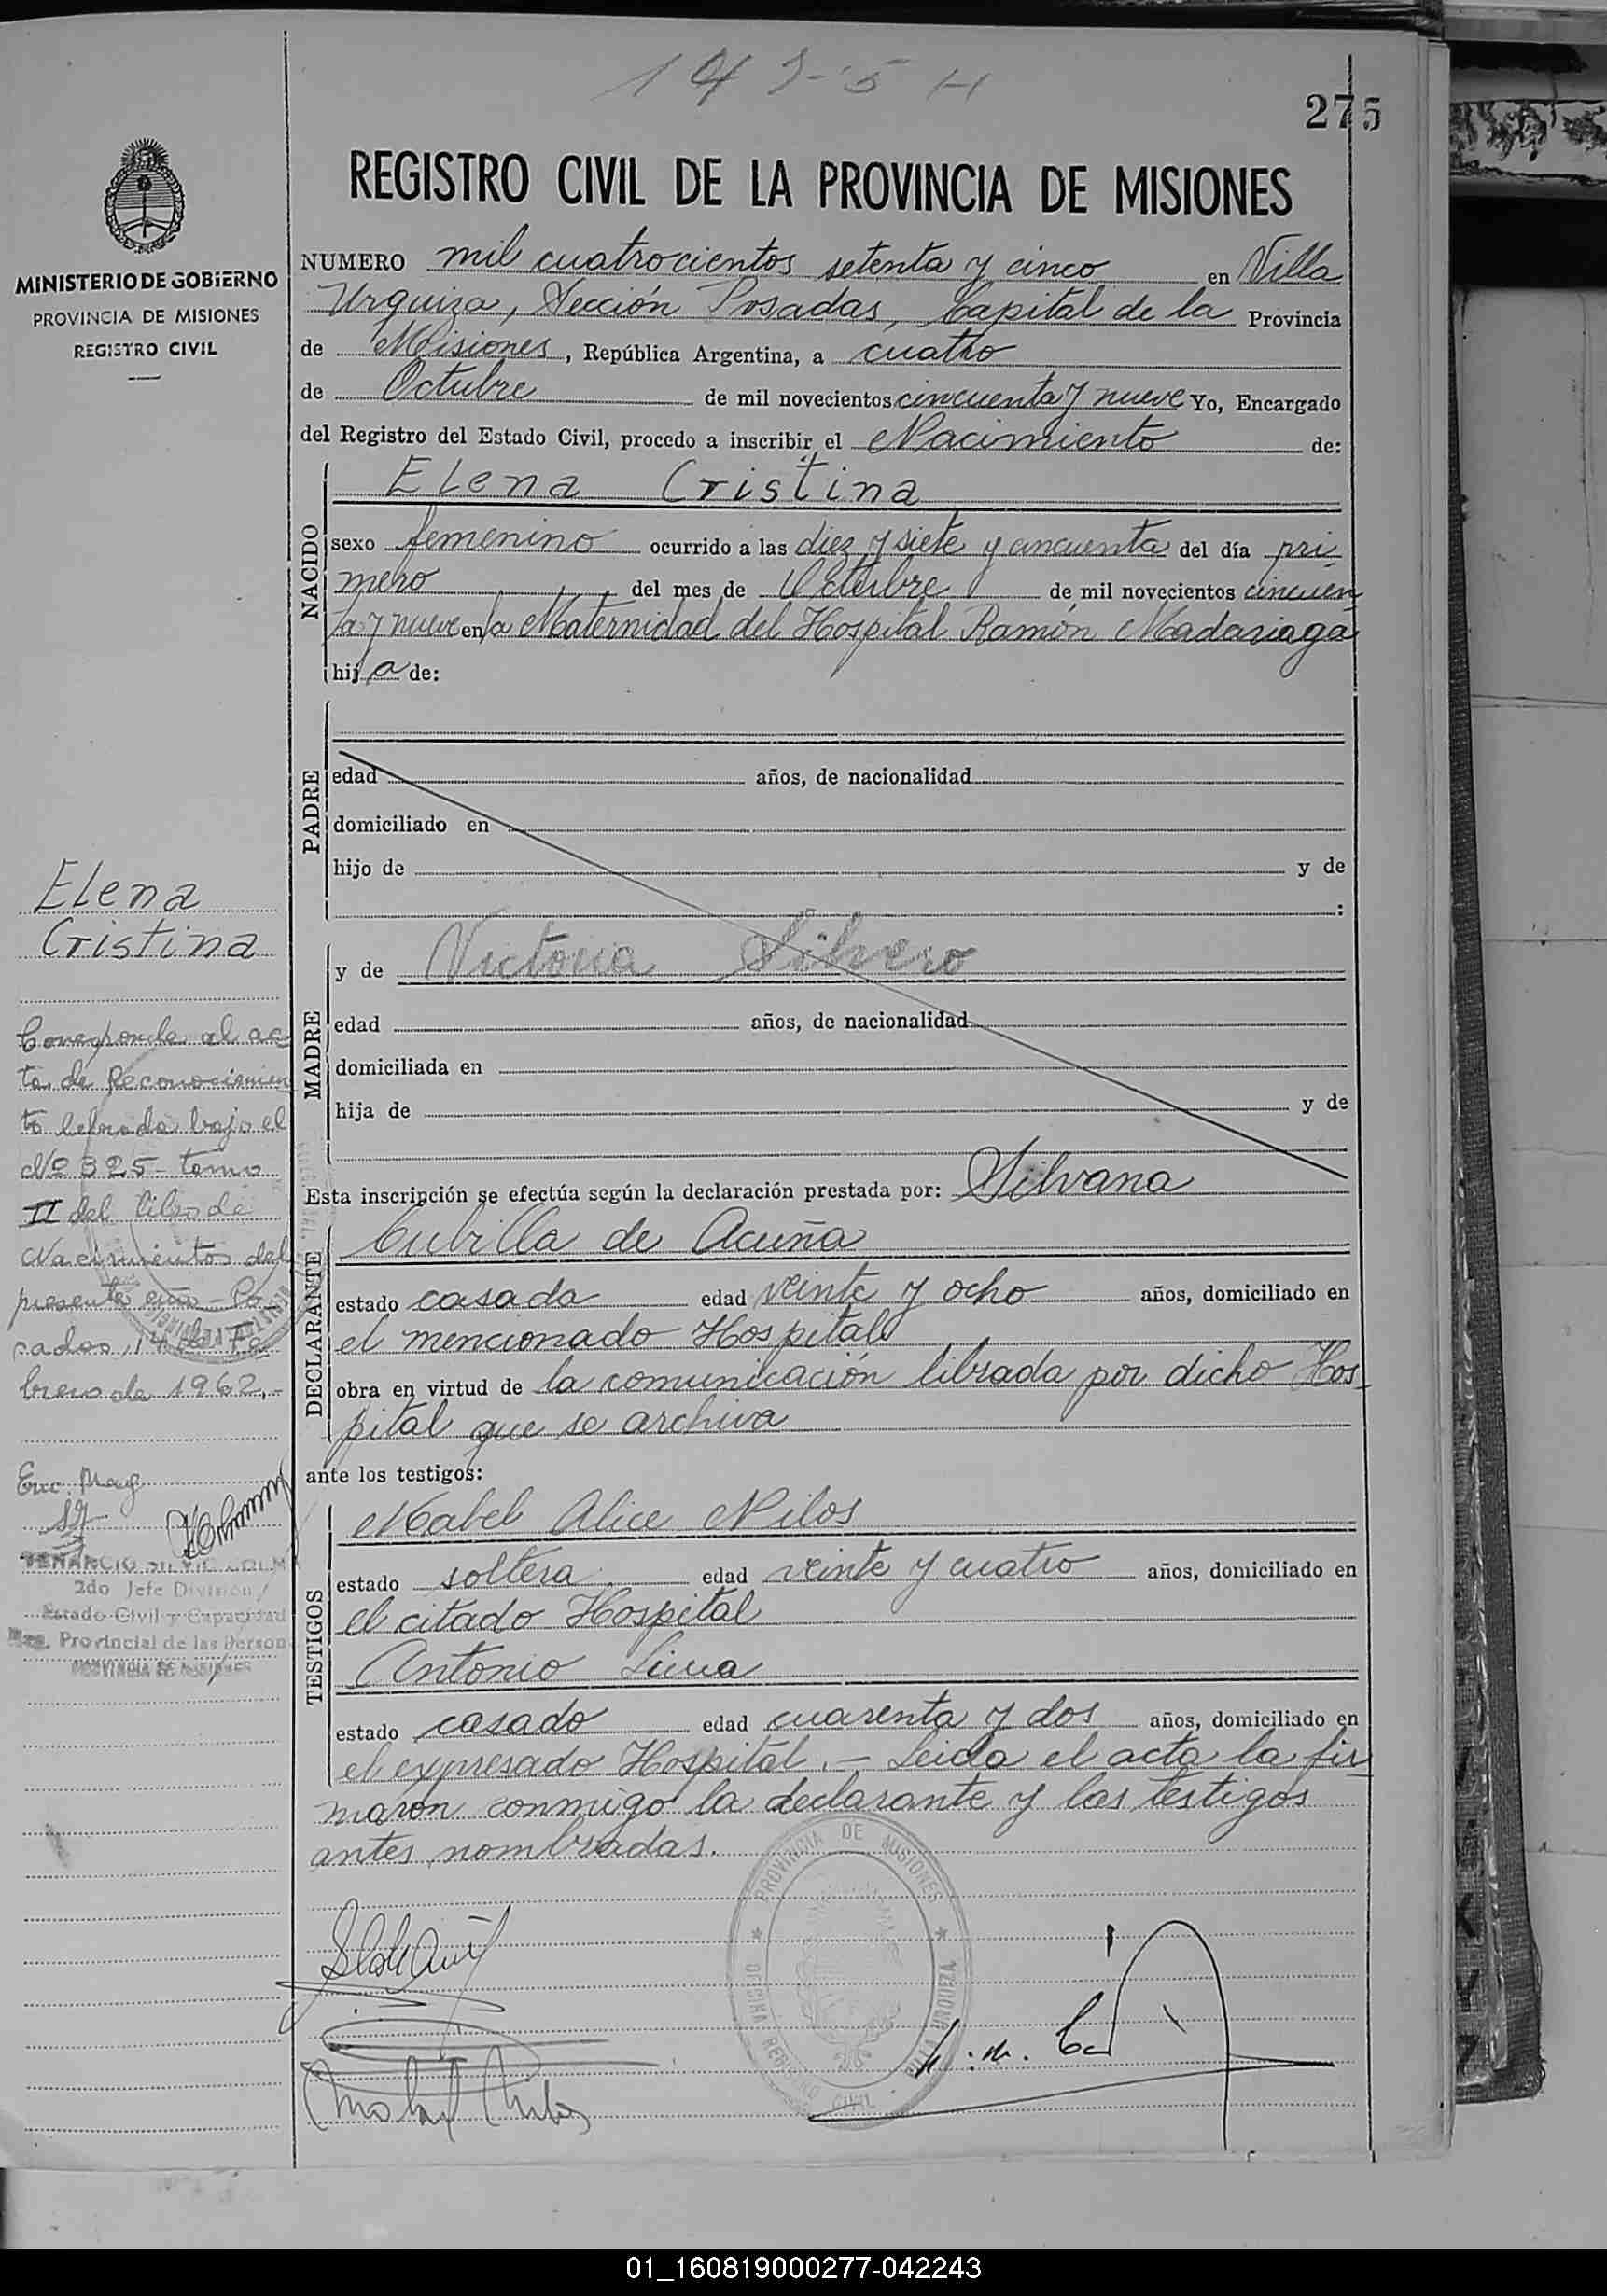 275
REGISTRO CIVIL DE LA PROVINCIA DE MISIONES
MINISTERIO DE GOBIERNO
PROVINCIA DE MISIONES
REGISTRO CIVIL
NUMERO mil cuatrocientos setenta y cinco en Villa
Urquiza, Sección Posadas, Capital de la Provincia
de Misiones, República Argentina, a cuatro
de Octubre de mil novecientos cincuenta y nueve Yo, Encargado
del Registro del Estado Civil, procedo a inscribir el Nacimiento de:
NACIDO
Elena Cristina
sexo femenino ocurrido a las diez y siete y cincuenta del día pri
mero del mes de Octubre de mil novecientos cincuen
ta y nueve en la Maternidad del Hospital Ramón Madariaga
hija de:
PADRE
edad años, de nacionalidad
domiciliado en
hijo de y de
:
MADRE
y de Victoria Silvero
edad años, de nacionalidad
domiciliada en
hija de y de
Esta inscripción se efectúa según la declaración prestada por: Silvana
DECLARANTE
Cubilla de Acuña
estado casada edad veinte y ocho años, domiciliado en
el mencionado Hospital
obra en virtud de la comunicación librada por dicho Hos
pital que se archiva
ante los testigos:
TESTIGOS
Mabel Alice Nilos
estado soltera edad veinte y cuatro años, domiciliado en
el citado Hospital
Antonio
estado casado edad cuarenta y dos años, domiciliado en
el expresado Hospital.- Leida el acta la fir
maron conmigo la declarante y los testigos
antes nombradas.
PROVINCIA DE MISIONES
OFICINA REGISTRO CIVIL VILLA URQUIZA
Elena
Cristina
Corresponde al ac
ta de Reconocimien
to labrada bajo el
Nº 325 - tomo
II del libro de
Nacimientos del
presente año - Po
sadas, 14 de Fe
brero de 1962.-
2do Jefe División
Estado Civil y Capacidad
Reg. Provincial de las Person
PROVINCIA DE MISIONES
01_160819000277-042243